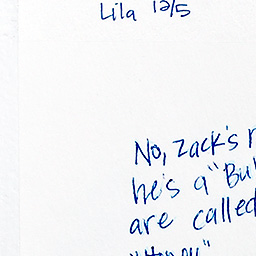 Lila 12/5
No, Zack's
he's a "Bu
are called